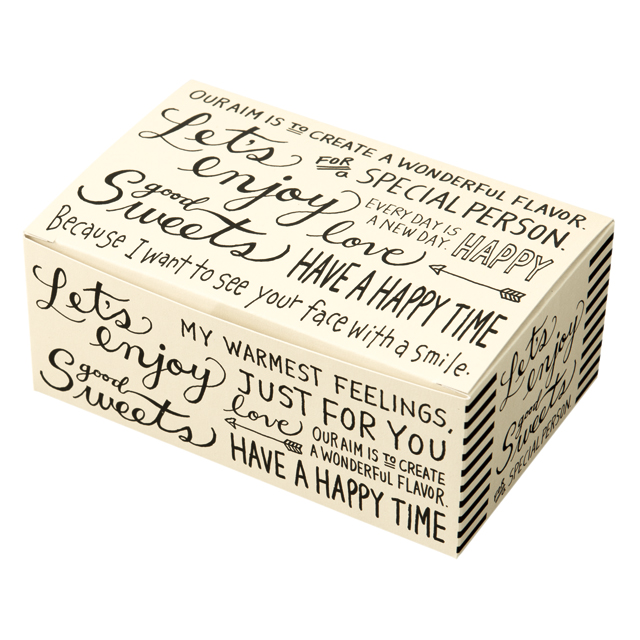 OUR AIM IS TO CREATE A WONDERFUL FLAVOR.
Let's enjoy
FOR a SPECIAL PERSON.
good Sweets
love
EVERY DAY IS
A NEW DAY.
HAPPY
HAVE A HAPPY TIME
Because I want to see your face with a smile.
Let's enjoy
good Sweets
MY WARMEST FEELINGS,
JUST FOR YOU
love
OUR AIM IS TO CREATE
A WONDERFUL FLAVOR.
HAVE A HAPPY TIME
Let's
enjoy
good
Sweets
FOR a SPECIAL PERSON.